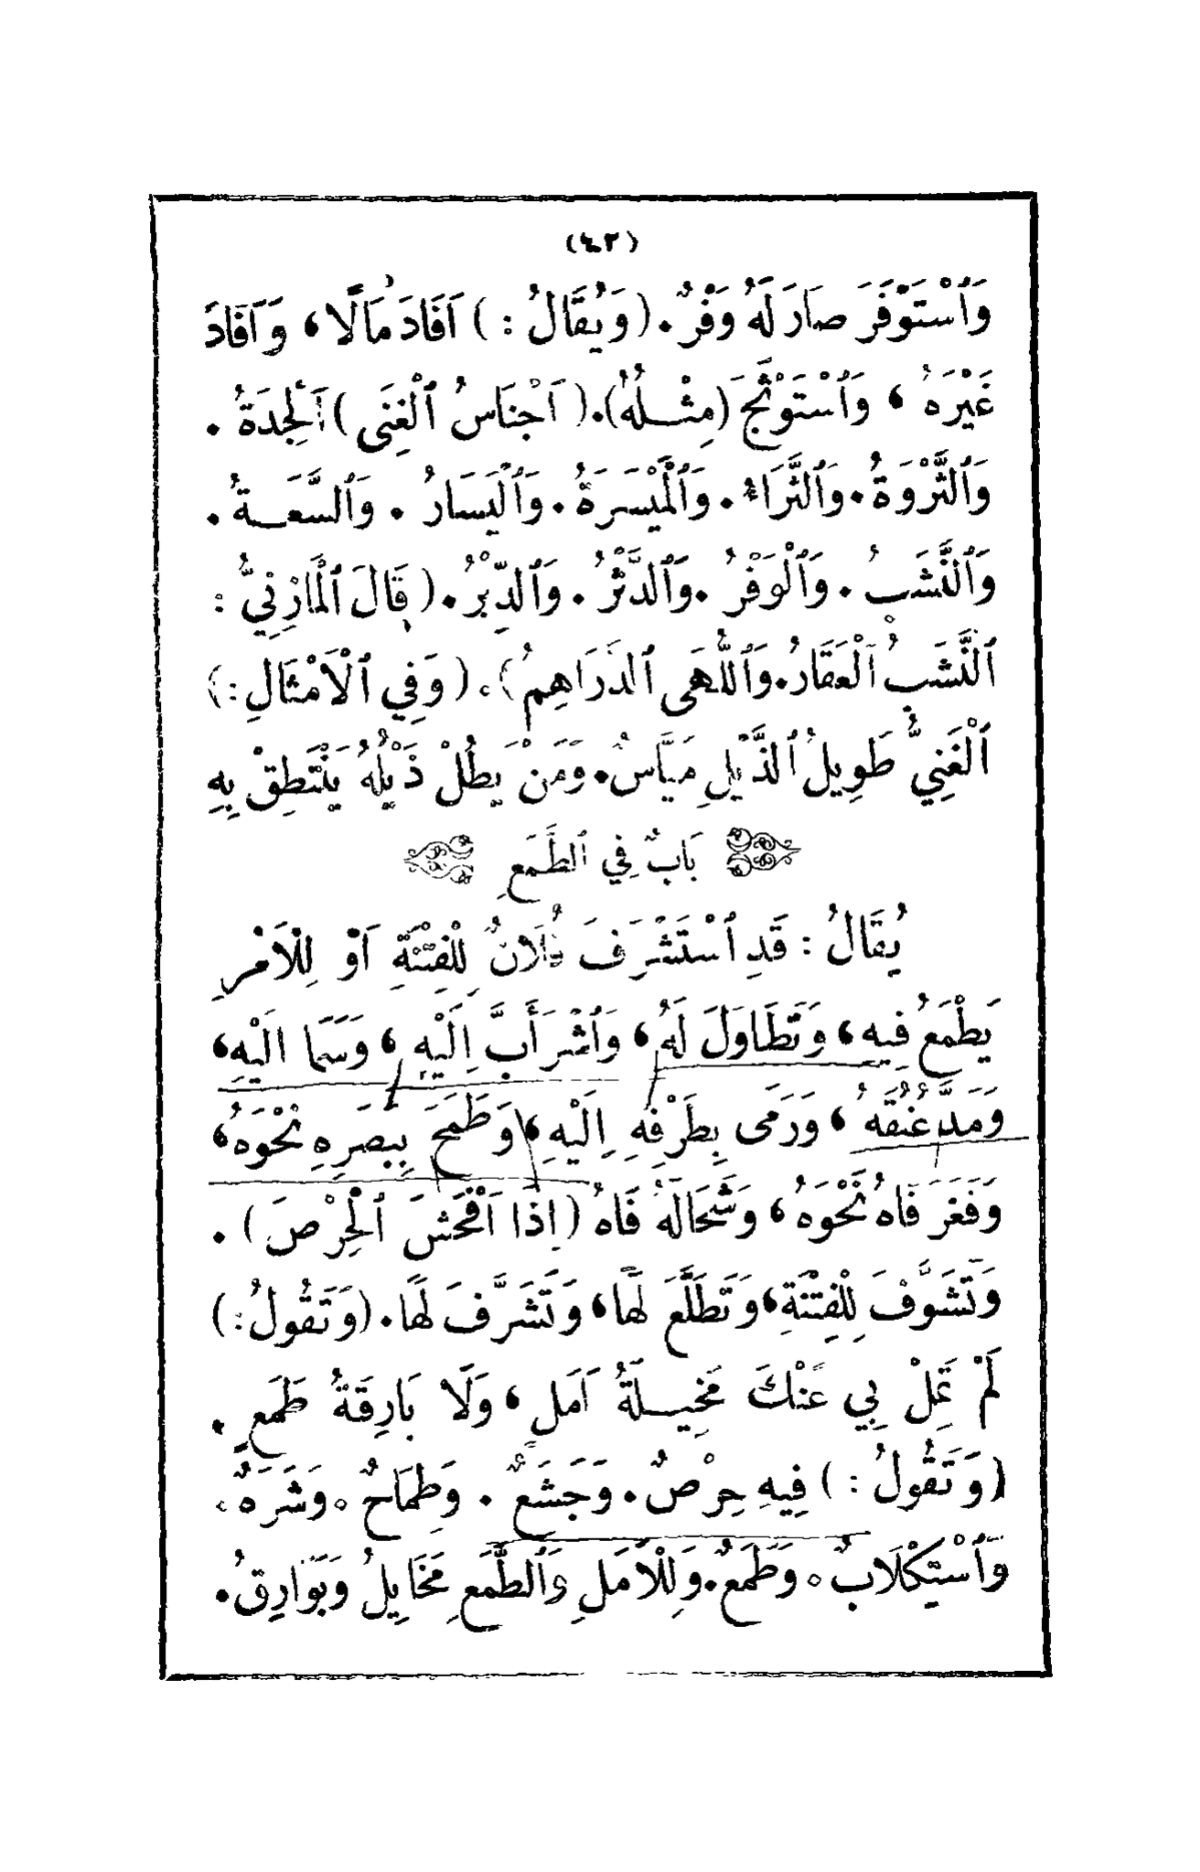 (٤٢)
وَٱسْتَوْفَرَ صَارَ لَهُ وَفْرٌ. (وَيُقَالُ :) اَفَادَ مَالًا، وَاَفَادَ
غَيْرَهُ، وَٱسْتَوْثَجَ (مِثْلُهُ). (اَجْنَاسُ ٱلْغِنَى) اَلْجِدَةُ.
وَٱلثَّرْوَةُ. وَٱلثَّرَاءُ. وَٱلْمَيْسَرَةُ. وَٱلْيَسَارُ. وَٱلسَّعَةُ.
وَٱلنَّشَبُ. وَٱلْوَفْرُ. وَٱلدَّثْرُ. وَٱلدِّبْرُ. (قَالَ ٱلْمَازِنِيُّ :
ٱلنَّشَبُ ٱلْعَقَارُ. وَٱللُّهَى ٱلدَرَاهِمُ). (وَفِي ٱلْاَمْثَالِ :)
ٱلْغَنِيُّ طَوِيلُ ٱلذَّيْلِ مَيَّاسٌ. وَمَنْ يَطُلْ ذَيْلُهُ يَنْتَطِقْ بِهِ
بَابٌ فِي ٱلطَّمَعِ
يُقَالُ : قَدِ ٱسْتَشْرَفَ فُلَانٌ لِلْفِتْنَةِ اَوْ لِلْاَمْرِ
يَطْمَعُ فِيهِ، وَتَطَاوَلَ لَهُ، وَٱشْرَأَبَّ اِلَيْهِ، وَسَمَا اِلَيْهِ،
وَمَدَّ عُنُقَهُ، وَرَمَى بِطَرْفِهِ اِلَيْهِ، وَطَمَحَ بِبَصَرِهِ نَحْوَهُ،
وَفَغَرَ فَاهُ نَحْوَهُ، وَشَحَا لَهُ فَاهُ (اِذَا اَفْحَشَ ٱلْحِرْصَ).
وَتَشَوَّفَ لِلْفِتْنَةِ، وَتَطَلَّعَ لَهَا، وَتَشَرَّفَ لَهَا. (وَتَقُولُ :)
لَمْ تَمِلْ بِي عَنْكَ مَخِيلَةُ اَمَلٍ، وَلَا بَارِقَةُ طَمَعٍ.
(وَتَقُولُ :) فِيهِ حِرْصٌ. وَجَشَعٌ. وَطِمَاحٌ. وَشَرَهٌ.
وَٱسْتِكْلَابٌ. وَطَمَعٌ. وَلِلْاَمَلِ وَٱلطَّمَعِ مَخَايِلُ وَبَوَارِقُ.